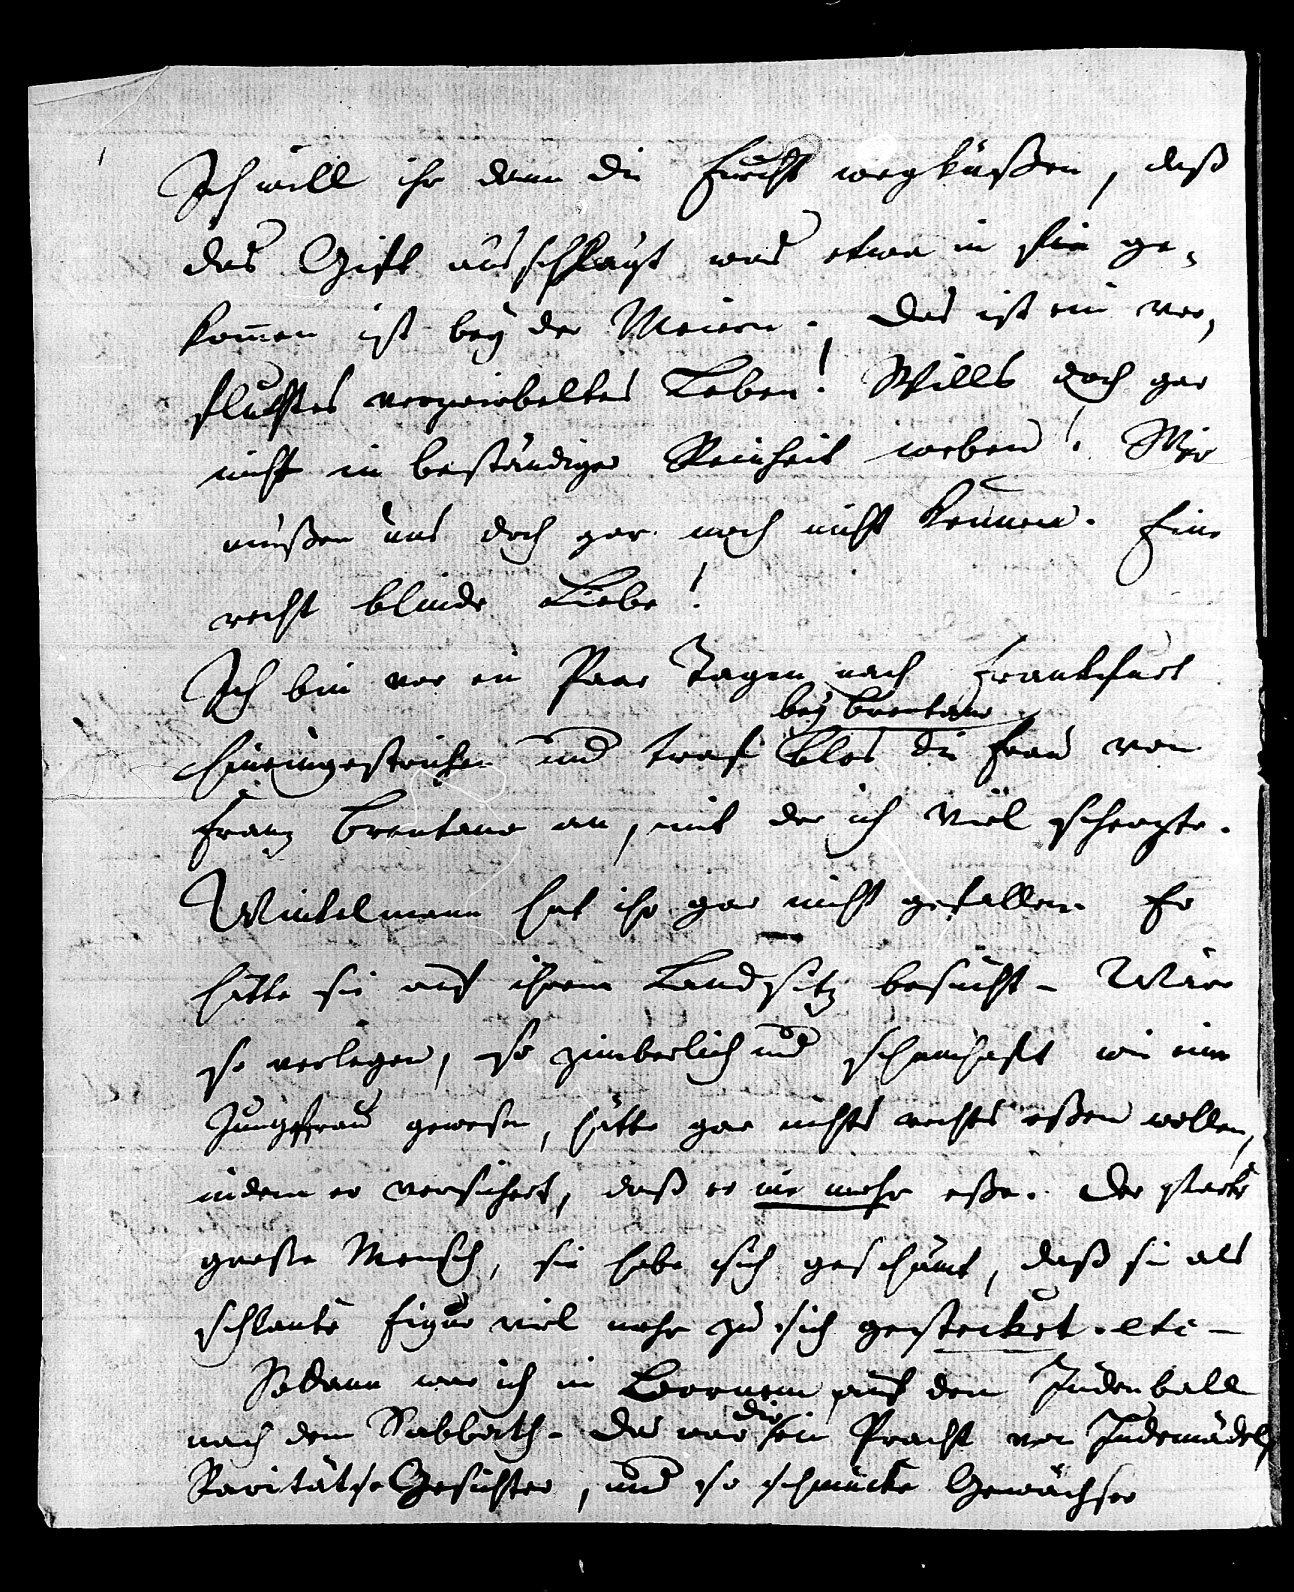 Ich will ihr dann die Furcht wegküßen, daß
das Gift ausschlägt was etwa in sie ge-
kom̄en ist bey der Meiern. Das ist ein ver-
fluchtes verzwirbeltes Leben! Wills doch gar
nicht in beständiger Reinheit weben! Wir
müßen uns doch gar noch nicht kennen. Eine
recht blinde Liebe!
Ich bin vor ein Paar Tagen nach Frankfurt
bey Brentano
hineingestrichen und traf blos die Frau von
Franz Brentano an, mit der ich viel scherzte.
Winkelmann hat ihr gar nicht gefallen. Er
hätte sie auf ihrem Landsitz besucht – Wäre
so verlegen, so zimberlich und schamhaft wie eine
Jungfrau gewesen, hätte gar nichts rechtes eßen wollen,
indem er versichert, daß er nie mehr eße. Der starke
große Mensch, sie habe sich geschämt, daß sie als
schlanke Figur viel mehr zu sich gesteckt. etc –
Sodann war ich in Bornem auf dem Judenball
nach dem Sabbath – Da war dir ein Pracht von Judemädels
Raritätse Gesichter, und so schmucke Gewächser